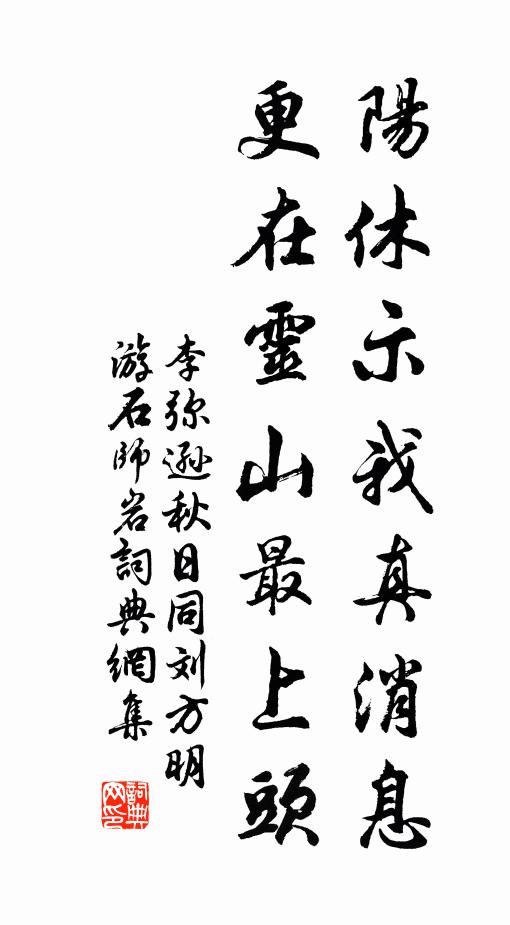 陽休示我真消息
更在靈山最上頭
李弥遜秋日同刘方明
游石師岩詞典網集
詞典网印